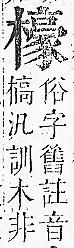 檺
俗字舊註音
槁汎訓木非